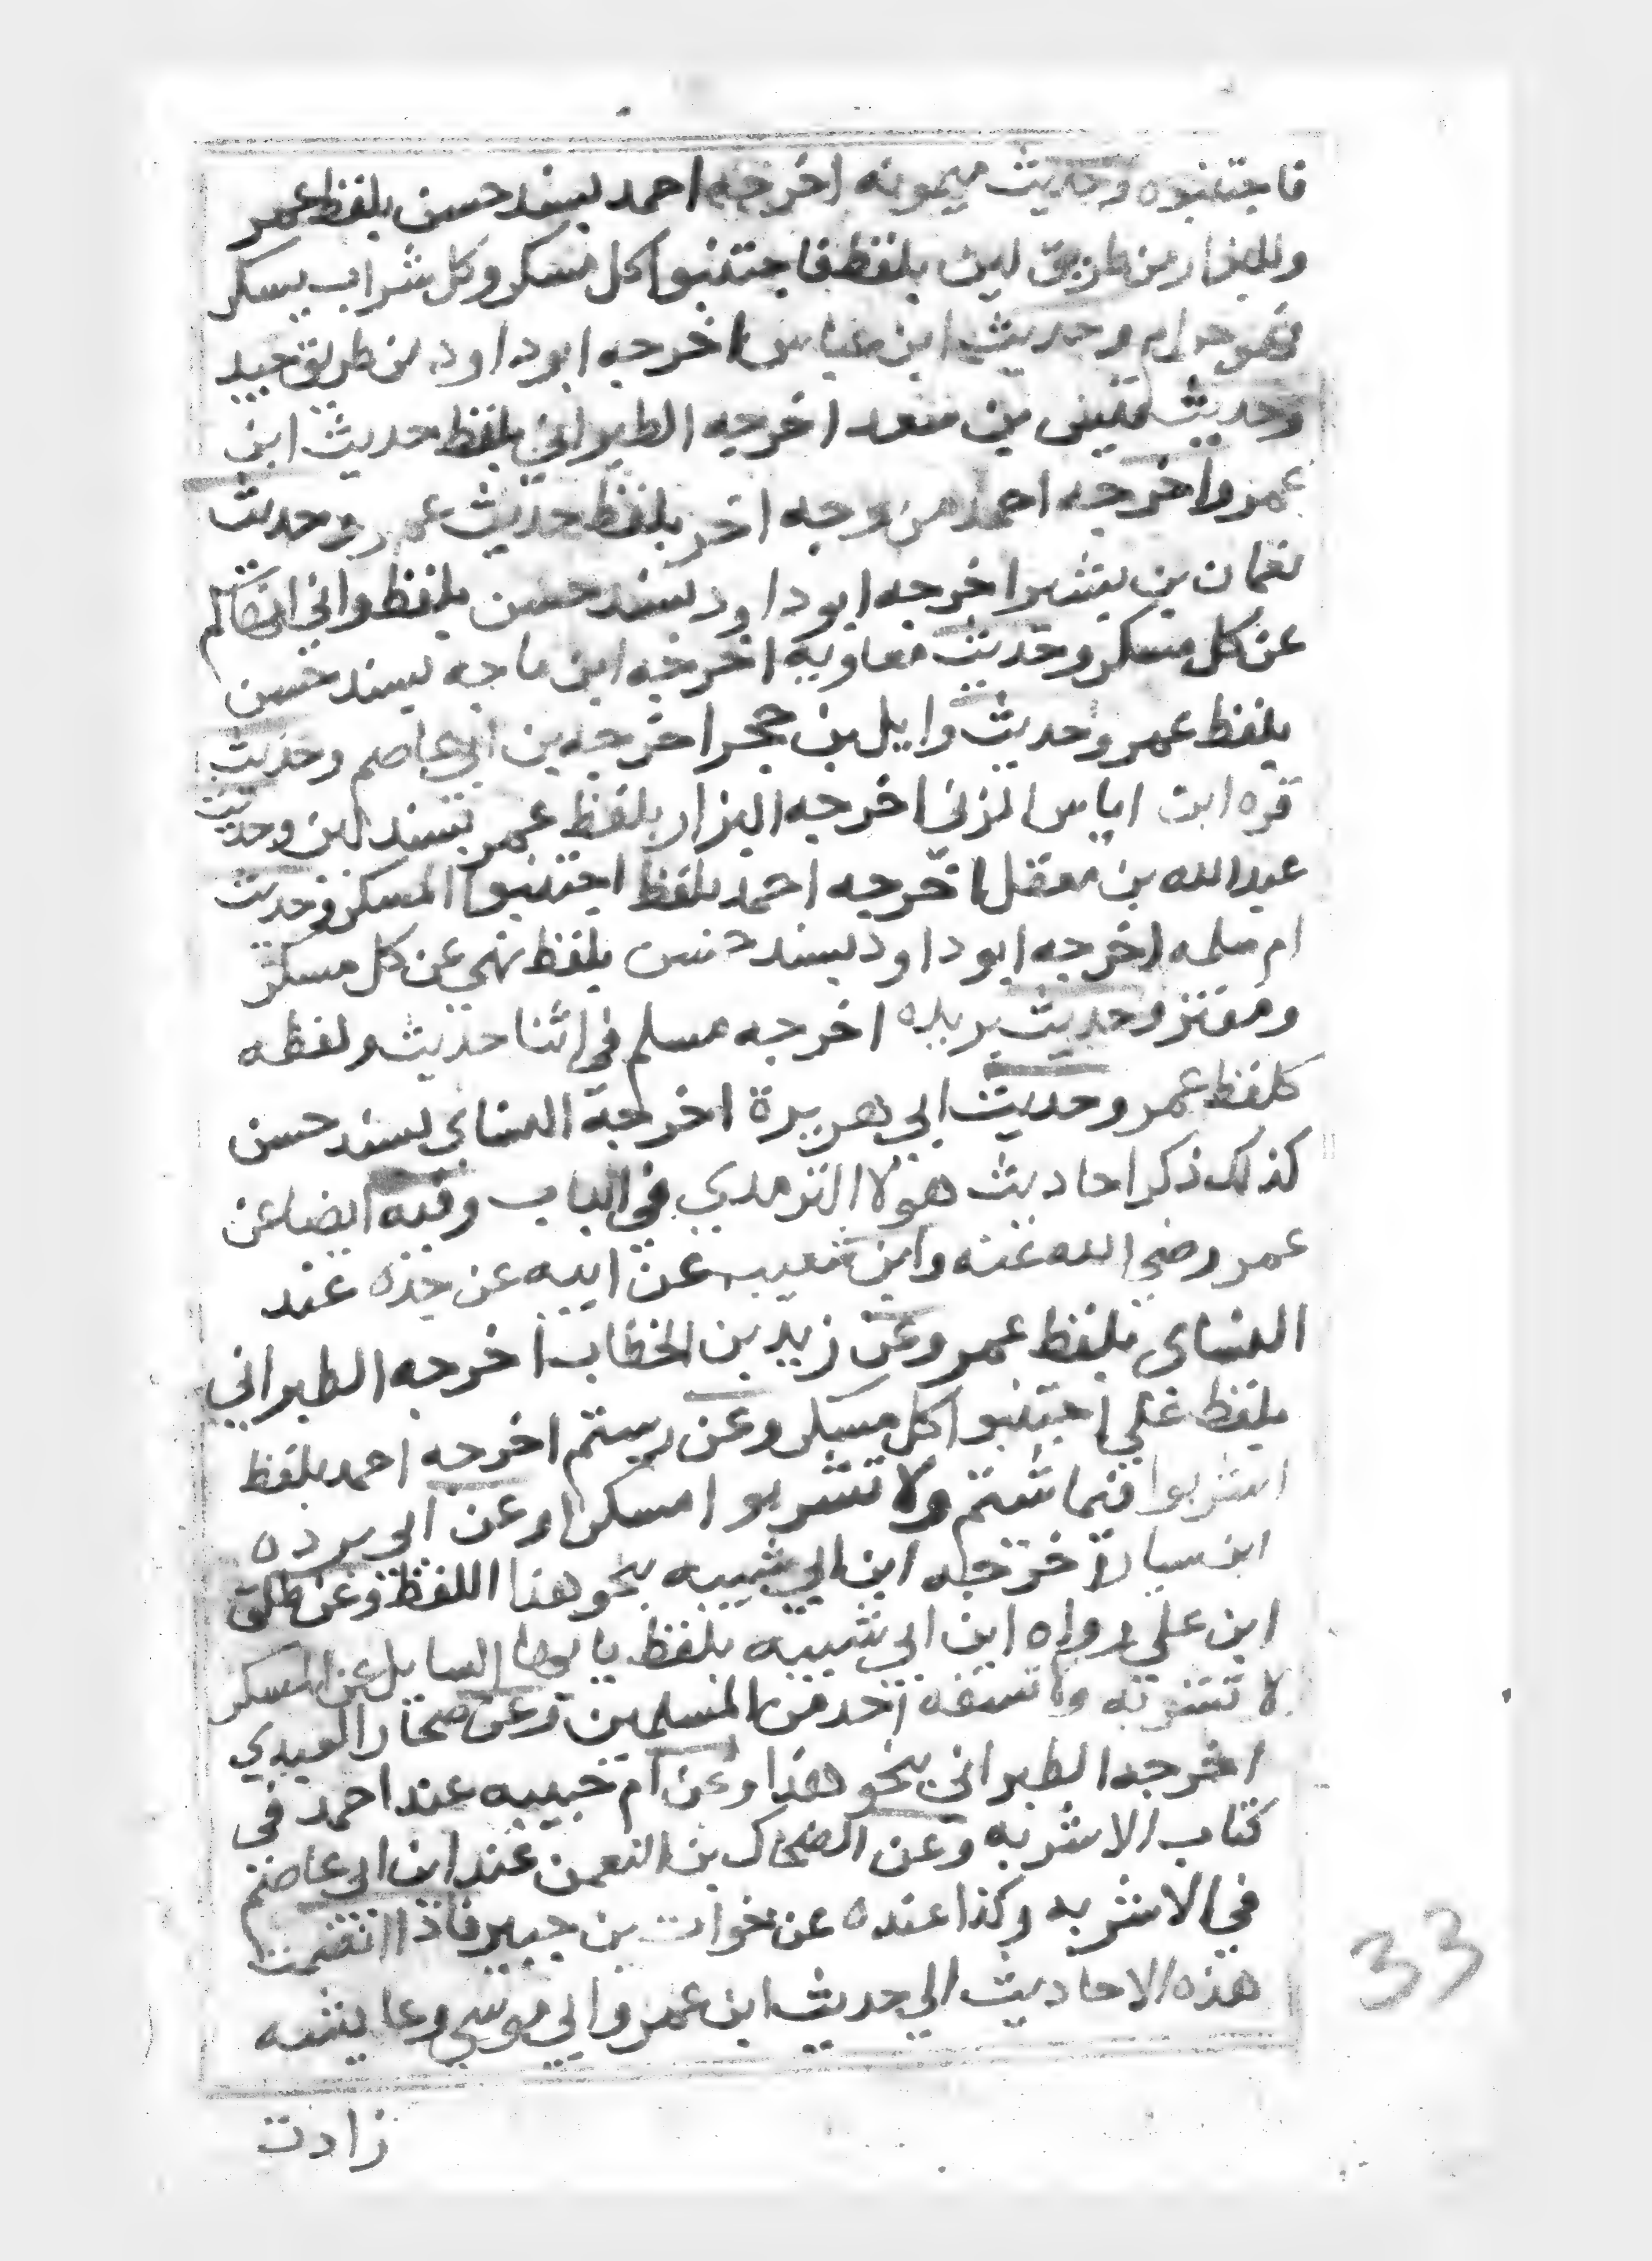 فاجتنبوه وحديث ميمونه اخرجه احمد بسند حسن بلفظ عمر
وللبزار من طريق لين بلفظ فاجتنبوا كل مسكر وكل شراب يسكر
فهو حرام وحديث ابن عباس اخرجه ابو داود من طريق جيد
وحديث قيس بن سعد اخرجه الطبراني بلفظ حديث ابن
عمر واخرجه احمد من وجه اخر بلفظ حديث عمر وحديث
نعمان بن بشير اخرجه ابو داود بسند حسن بلفظ واني انهاكم
عن كل مسكر وحديث معاويه اخرجه ابن ماجه بسند حسن
بلفظ عمر وحديث وايل بن حجر اخرجه بن ابي عاصم وحديث
قره ابن اياس المزني اخرجه البزار بلفظ عمر بسند لين وحديث
عبد الله بن مغفل اخرجه احمد بلفظ اجتنبوا المسكر وحديث
ام سلمه اخرجه ابو داود بسند حسن بلفظ نهي عن كل مسكر
ومفتر وحديث بريده اخرجه مسلم في اثنا حديث ولفظه
كلفظ عمر وحديث ابي هريرة اخرجه النساى بسند حسن
كذلك ذكر احاديث هولا الترمدي في الباب وفيه ايضا عن
عمر رضي الله عنه وابن شعيب عن ابيه عن جده عند
النساى بلفظ عمر وعن زيد بن الخطاب اخرجه الطبراني
بلفظ علي اجتنبوا كل مسكر وعن رستم اخرجه احمد بلفظ
اشربوا فيما شئتم ولا تشربوا مسكرا وعن ابي برده
ابن سيار خرجه ابن ابي شيبه بنحو هذا اللفظ وعن طلق
ابن علي رواه ابن ابي شيبه بلفظ يا ايها السايل عن المسكر
لا تشربه ولا تسقه احد من المسلمين وعن صحار العبدي
اخرجه الطبراني بنحو هذا وعن ام حبيبه عند احمد في
كتاب الاشربه وعن الضحاك بن النعمن عند ابن ابي عاصم
في الاشربه وكذا عنده عن خوات بن جبير فاذا انضمت
هذه الاحاديث الي حديث ابن عمر وابي موسي وعايشه
زادت
33